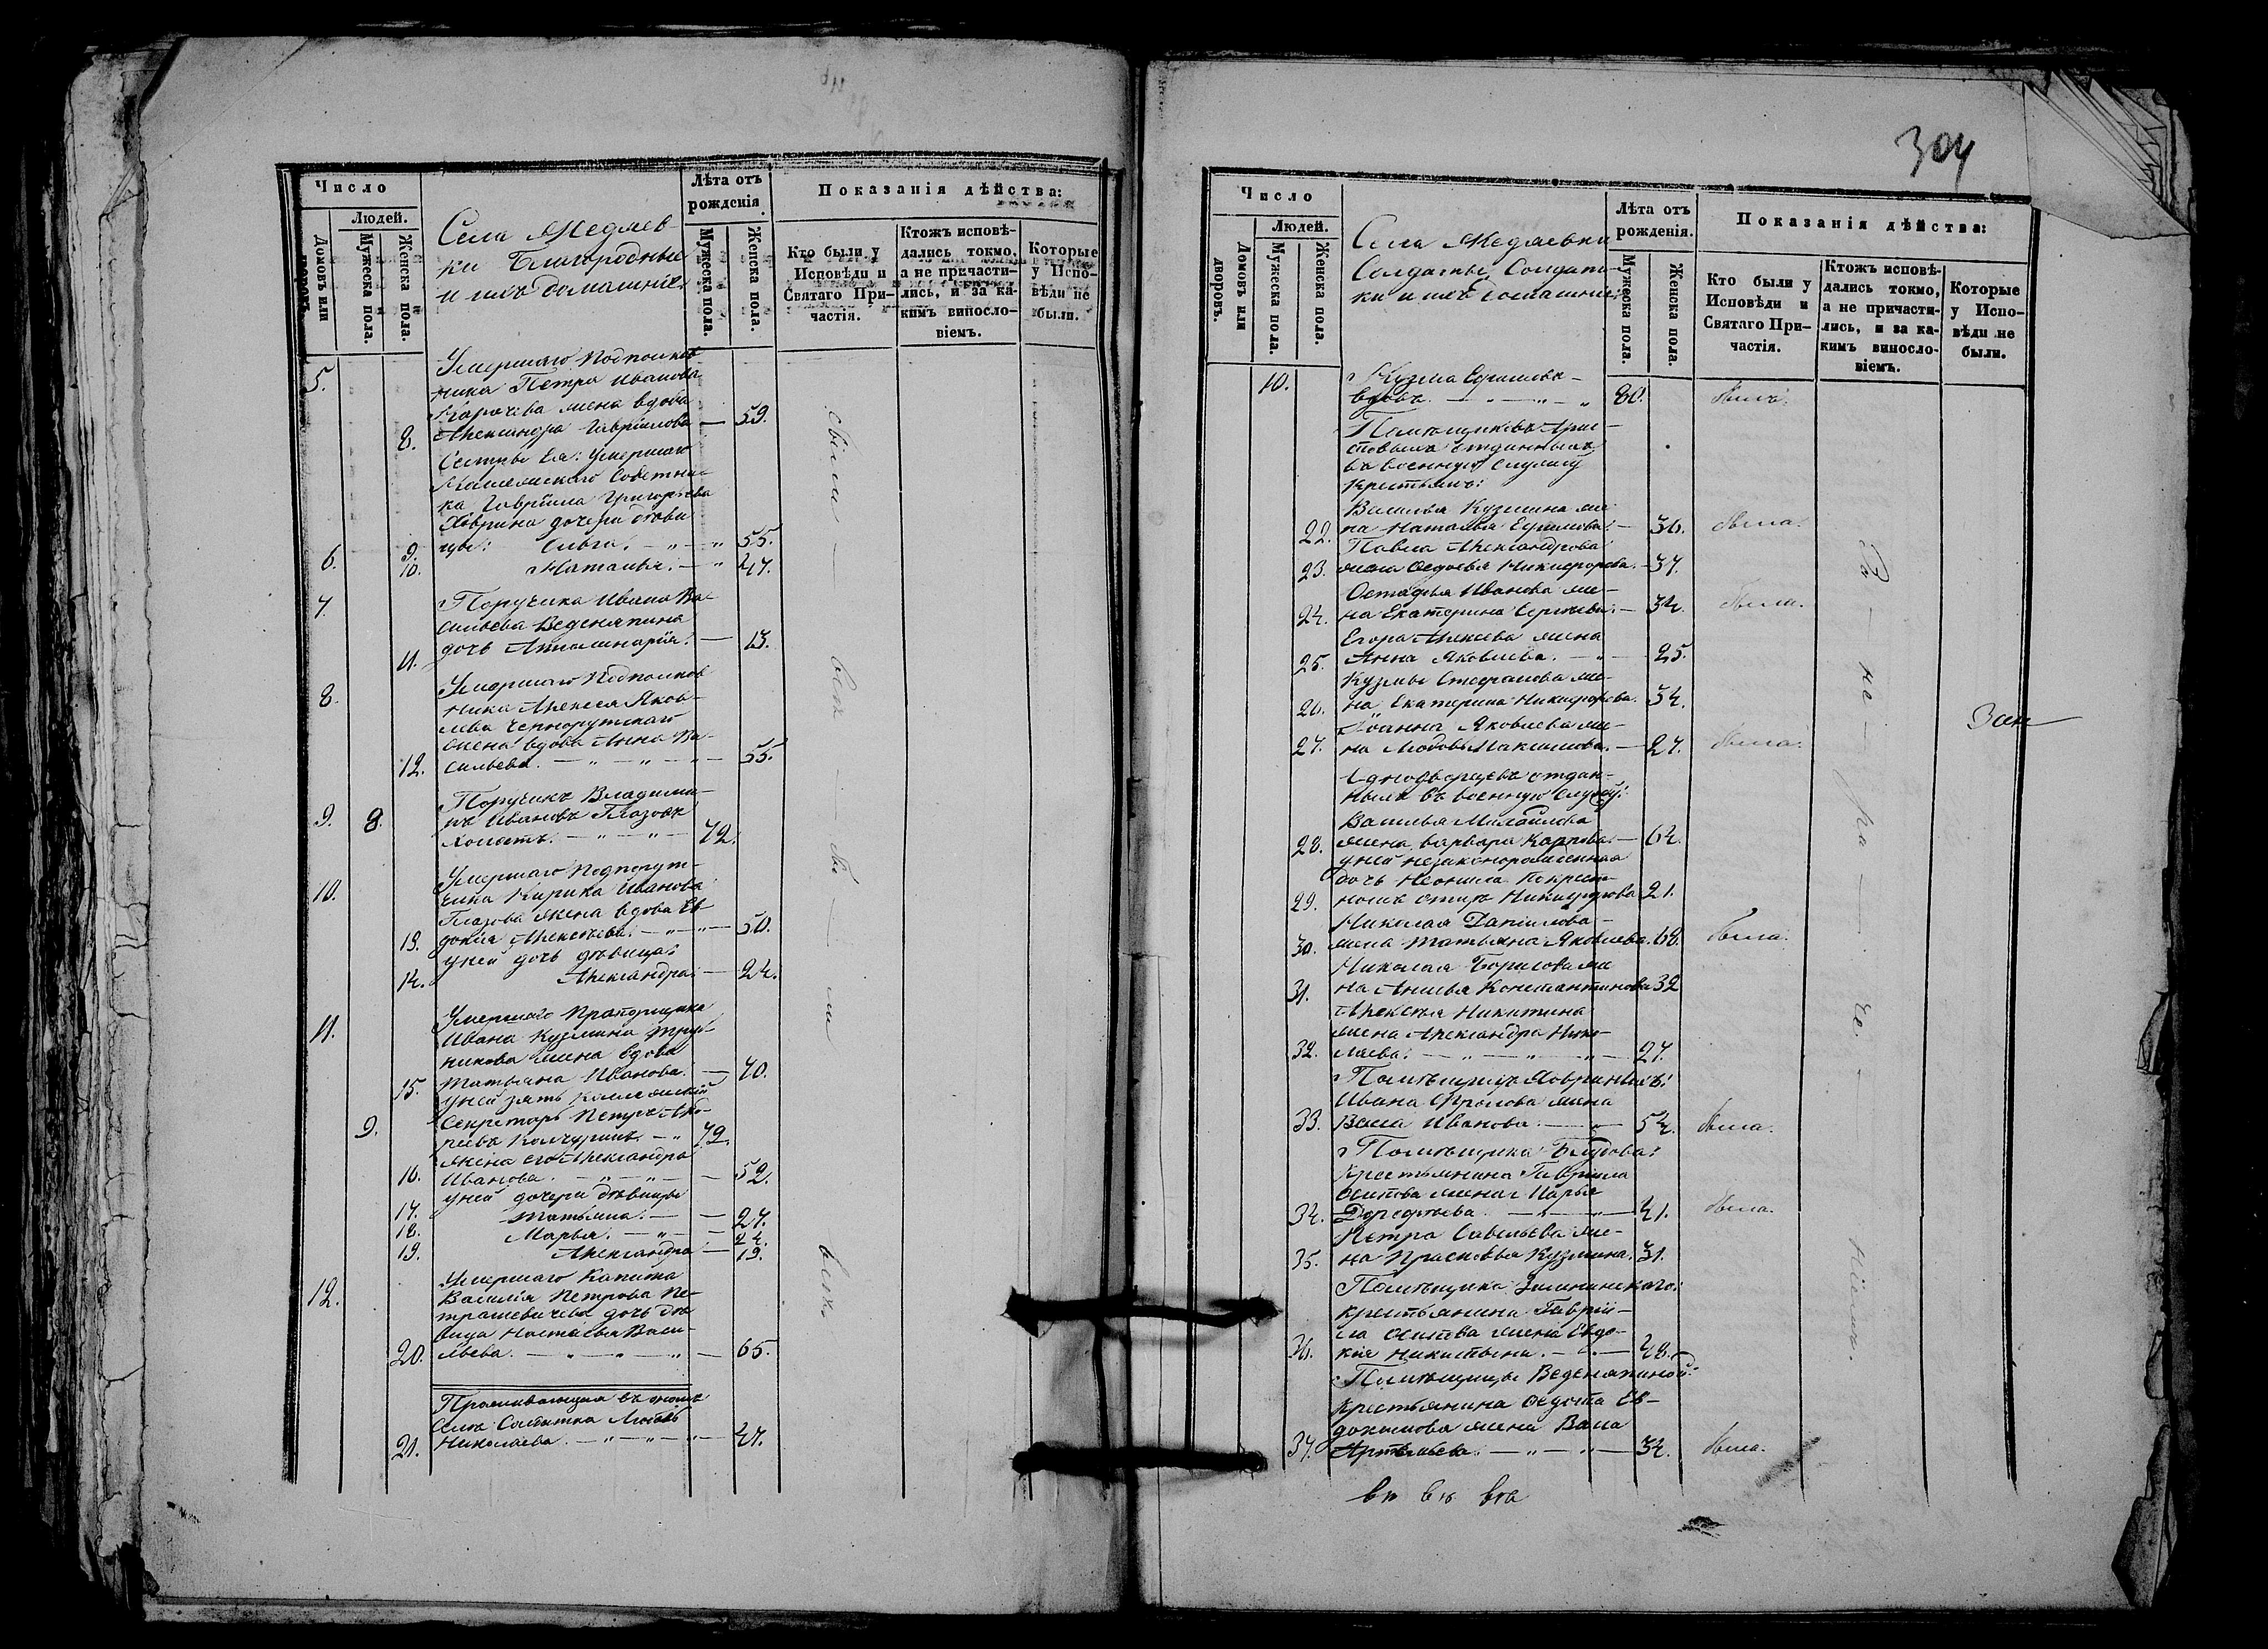 Число
Людей.
Домовъ или дворовъ.
Мужеска пола.
Женска пола.
Села Медаев-
ки Благородные
и ихъ домашніе.
Лѣта отъ
рожденія.
Мужеска пола.
Женска пола.
Показанія дѣйства:
Кто были у
Исповѣди и
Святаго При-
частія.
Ктожъ исповѣ-
дались токмо,
а не причасти-
лись, и за ка-
кимъ винослo-
віемъ.
Которые
у Испо-
вѣди не
были.
5. Умершаго Подполков
ника Петра Иванова
жена вдова
8. Александра Гаврилова — 59.
Сестры Ея: умершаго
Коллежскаго Совѣтни-
ка Гавріила Григорьева
дочери дѣви
6. 9. цы: Ольга. — 55.
10. Наталья. — 47.
7. Поручика Ивана Ва-
сильева Веденяпина
11. дочь Апполинарія. — 13.
8. Умершаго Подполков
ника Алексея Яков-
лева
жена вдова Анна Ва-
12. сильева. — 55.
9. 8. Поручикъ Владими-
ръ Ивановъ Глазовъ
холостъ. — 72.
10. Умершаго Подпору-
чика Кирика Иванова
Глазова жена вдова Ев-
13. докія Алексѣева. — 50.
у ней дочь дѣвица:
14. Александра. — 24.
11. Умершаго Прапорщика
Ивана Кузмина
жена вдова
15. Татьяна Иванова. — 70.
у ней зять Коллежскій
9. Секретарь Петръ Анд-
реевъ — 72.
жена его Александра
16. Иванова. — 52.
у ней дочери дѣвицы
17. Татьяна. — 27.
18. Марья. — 24.
19. Александра. — 19.
12. Умершаго Капитана
Василія Петрова Пе-
трашевичева дочь дѣ
вица Настасья Васи-
20. льева. — 65.
Проживающая въ ономъ
Селѣ Солдатка Любовь
21. Николаева. — 47.
были всѣ были всѣ
304
Число
Людей.
Домовъ или дворовъ.
Мужеска пола.
Женска пола.
Села Медаевки
Солдаты, Солдат-
ки и ихъ домашніе:
Лѣта отъ
рожденія.
Мужеска пола.
Женска пола.
Показанія дѣйства:
Кто были у
Исповѣди и
Святаго При-
частія.
Ктожъ исповѣ-
дались токмо,
а не причасти-
лись, и за ка-
кимъ винослo-
віемъ.
Которые
у Испо-
вѣди не
были.
10. Кузма Ефимовъ —
вдовъ. — 80. былъ.
Помѣщиковъ
отданныхъ
въ военную службу
крестьянъ:
Василья Кузмина же
22. на Наталья Ефимова. — 36. была.
Павла Александрова
23. жена Федосья Никифорова. — 37.
Остафья Иванова же-
24. на Екатерина Сергѣева. — 34. была.
Егора Алексѣева жена
25. Анна Яковлева. — 25.
Кузмы Стефанова же-
26. на Екатерина Никифорова. 34.
Іоанна Яковлева же-
27. на Любовь Максимова. — 27. была.
Однодворцевъ отдан-
ныхъ въ военную службу:
Василья Михайлова
28. жена Варвара Карпова. — 64.
у ней незаконорожденная
дочь Неонила по крест-
29. номъ отцѣ Никифорова 21.
Николая Данилова
30. жена Татьяна Яковлева. 68. была.
Николая Борисова же
31. на Анисья Константинова 32
Алексѣя Никитина
жена Александра Нико-
32. лаева. — 27.
Помѣщицъ
Ивана Фролова жена
33. Васса Иванова. — 54. была.
Помѣщика
Крестьянина Гаврила
Осипова жена Марья
34. Дорофѣева. — 41. была.
Петра Савельева же-
35. на Прасковья Кузмина. 31.
Помѣщика
крестьянина Гаврии-
ла Осипова жена Евдо-
36. кія Никитина. — 48.
Помѣщицы Веденяпиной:
Крестьянина Федота Ев-
докимова жена Васса
37. Артемьева. — 34. была.
За не ра че ніемъ.